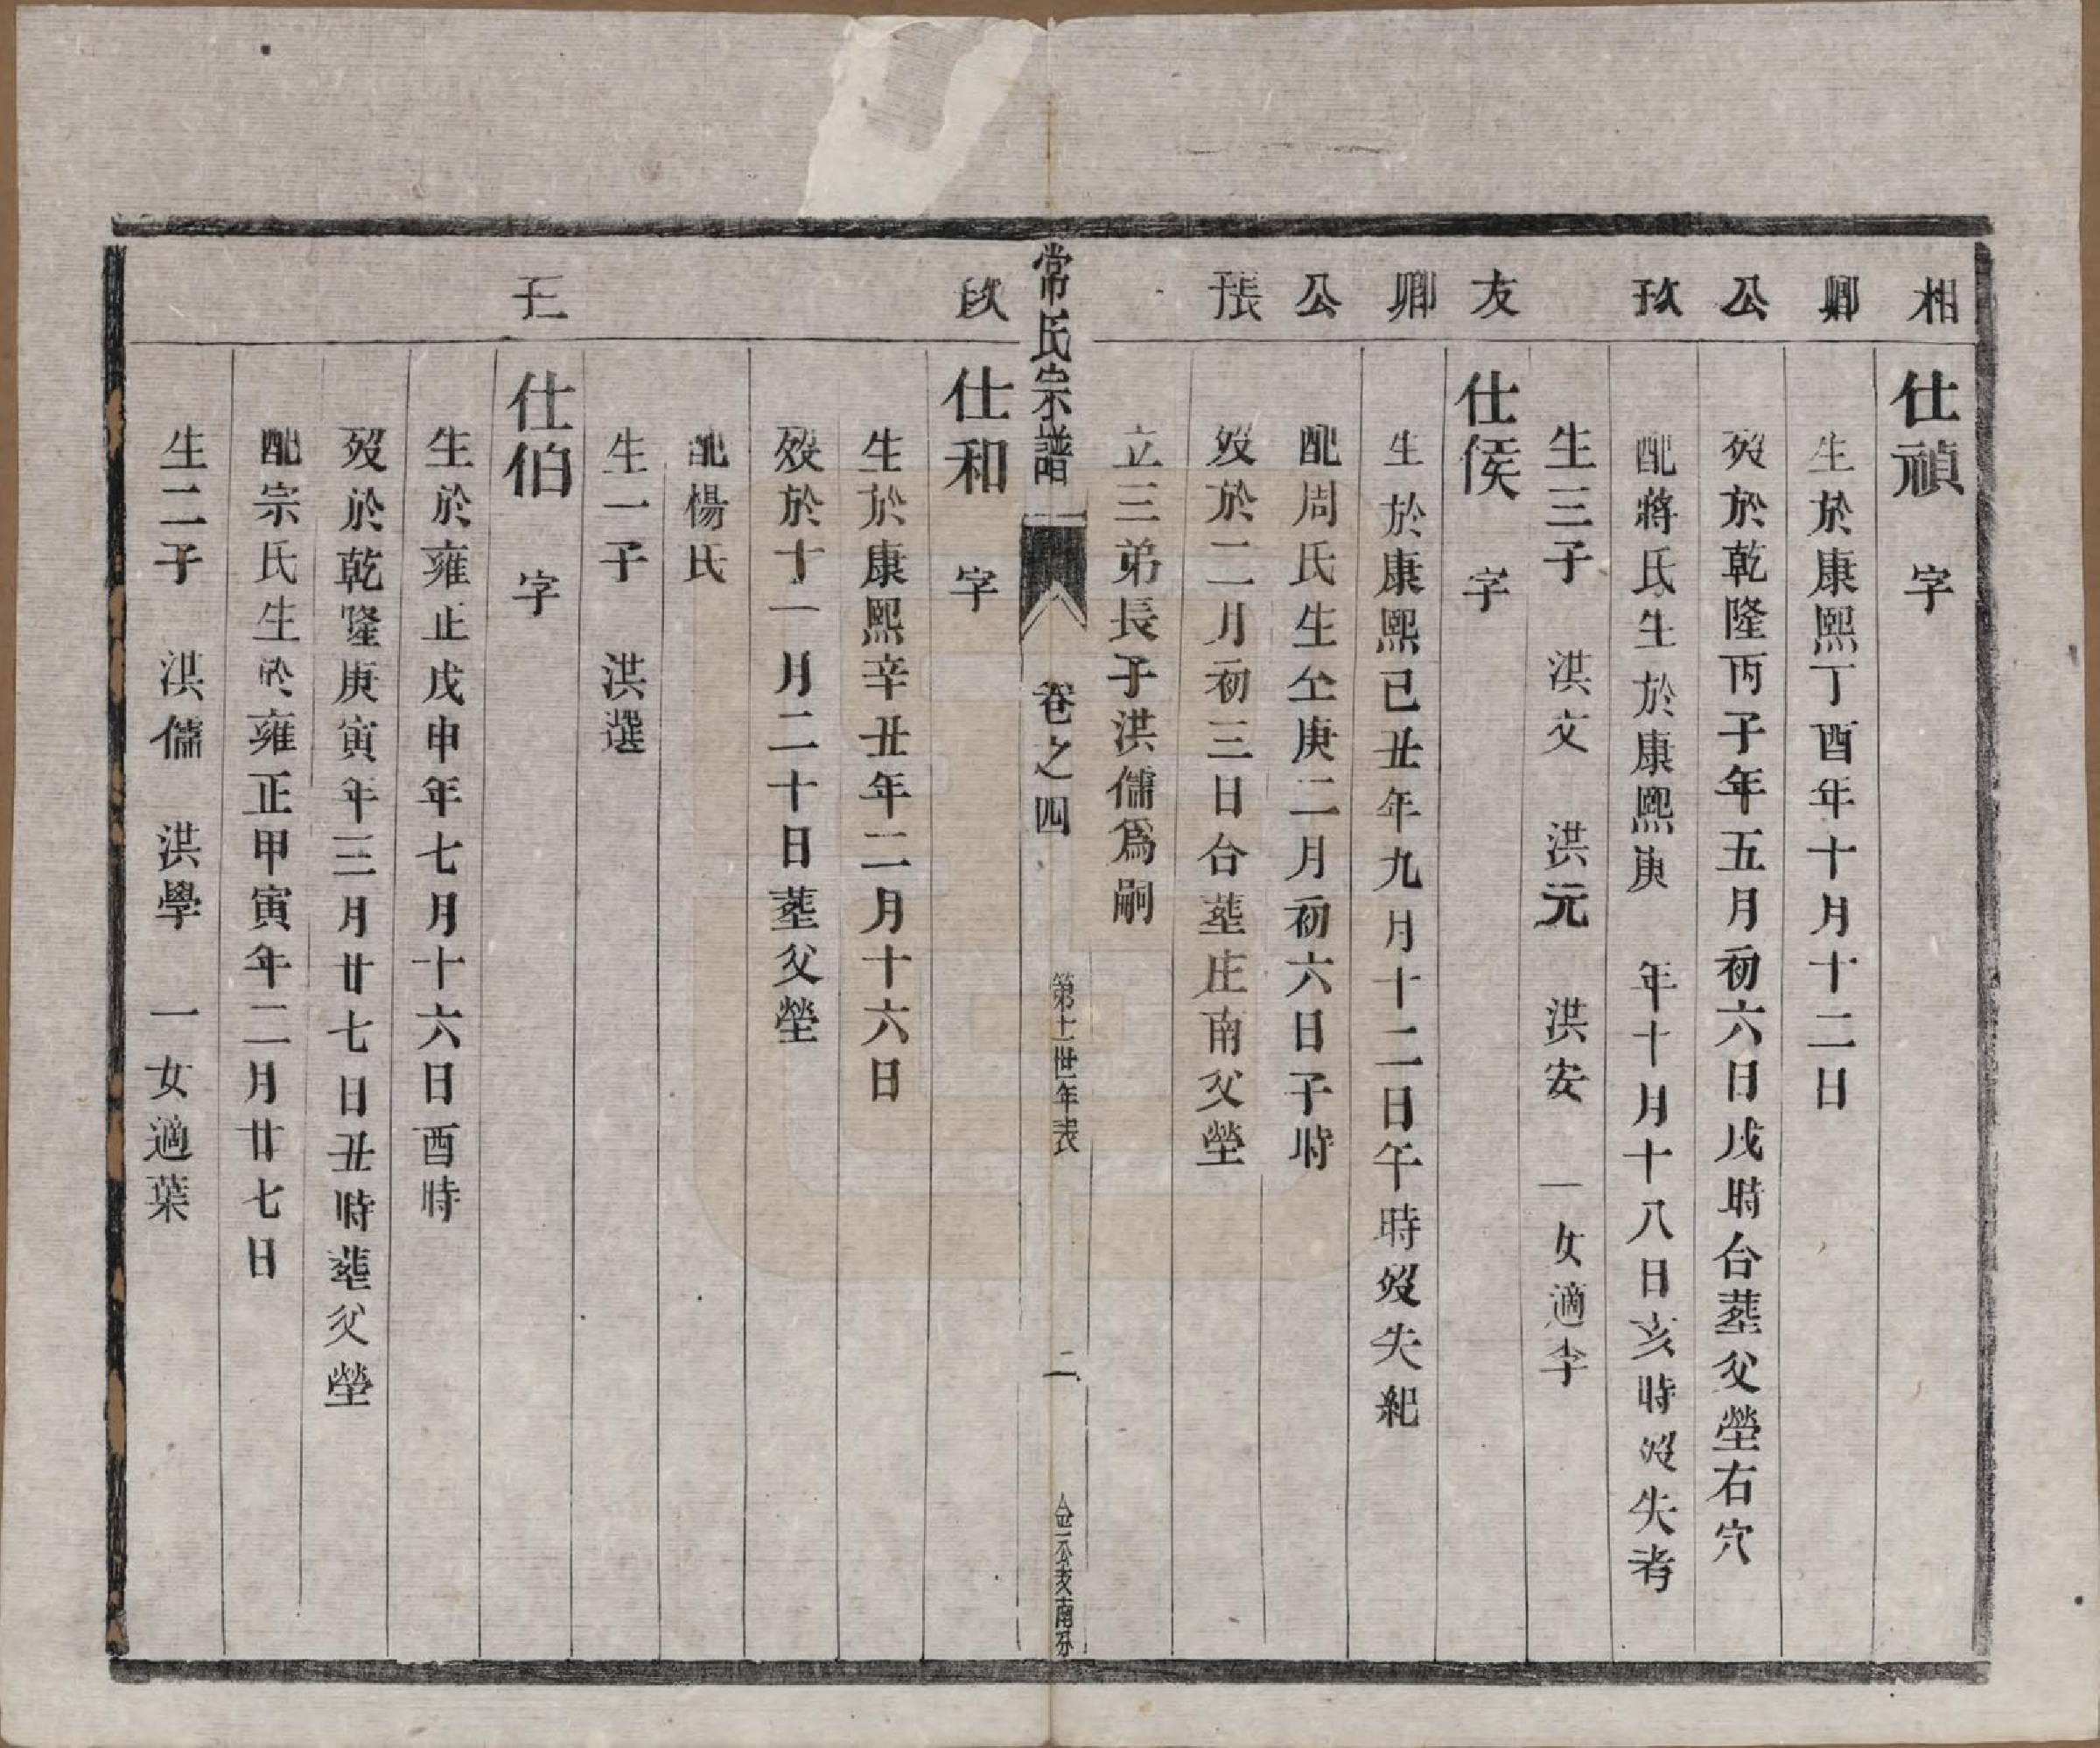 相
仕禎　字
卿
生於康熙丁酉年十月十二日
公
歿於乾隆丙子年五月初六日戌時合塟父塋右穴
玫
配蔣氏生於康熙庚　年十月十八日亥時歿失考
生三子　洪文　洪元　洪安　一女適李
友
仕侯　字
卿
生於康熙己丑年九月十二日午時歿失紀
公
配周氏生於庚二月初六日子時
張
歿於二月初三日合塟庄南父塋
立三弟長子洪儒爲嗣
常氏宗譜　卷之四　第十一世年表　二
仕和　字
生於康熙辛丑年二月十六日
歿於十一月二十日塟父塋
配楊氏
生一子　洪選
仕伯　字
生於雍正戊申年七月十六日酉時
歿於乾隆庚寅年三月廿七日丑時塟父塋
配宗氏生於雍正甲寅年二月廿七日
生二子　洪儒　洪學　一女適葉